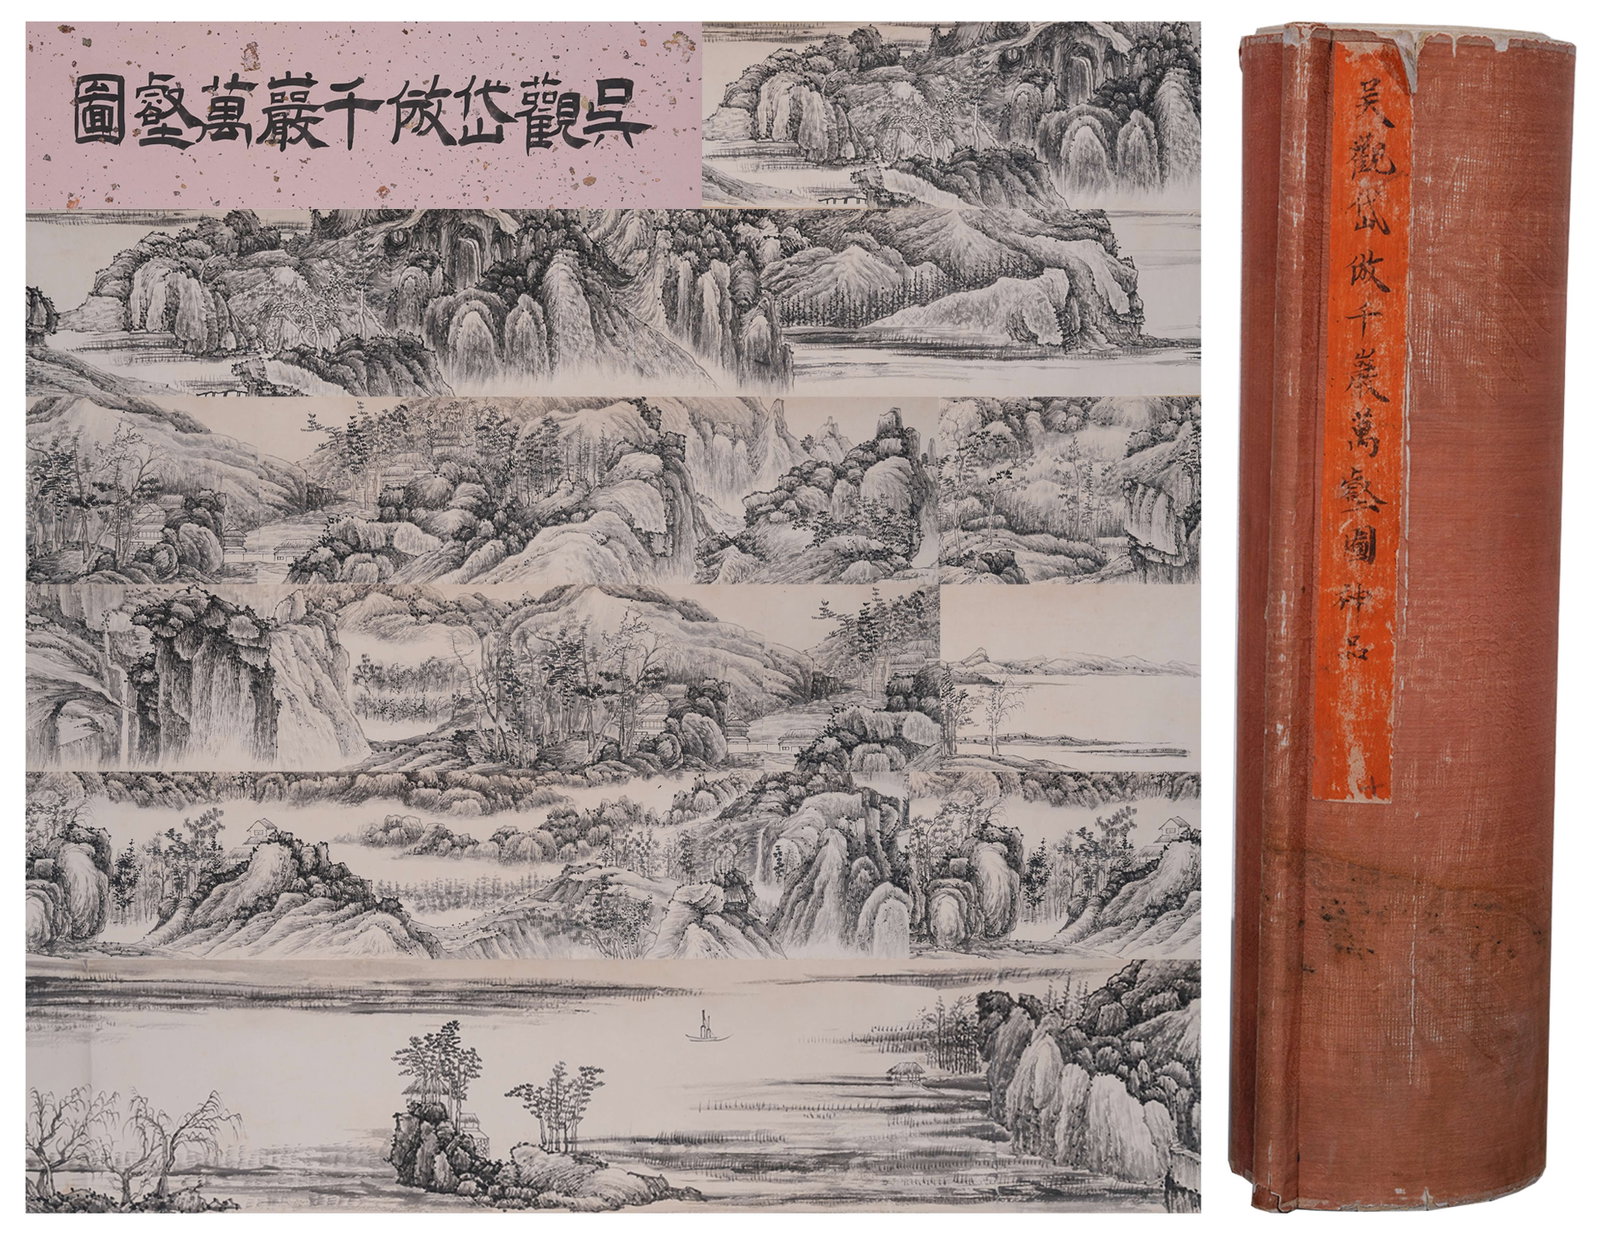 吳觀岱倣千巖萬壑圖
吳觀岱倣千巖萬壑圖神品